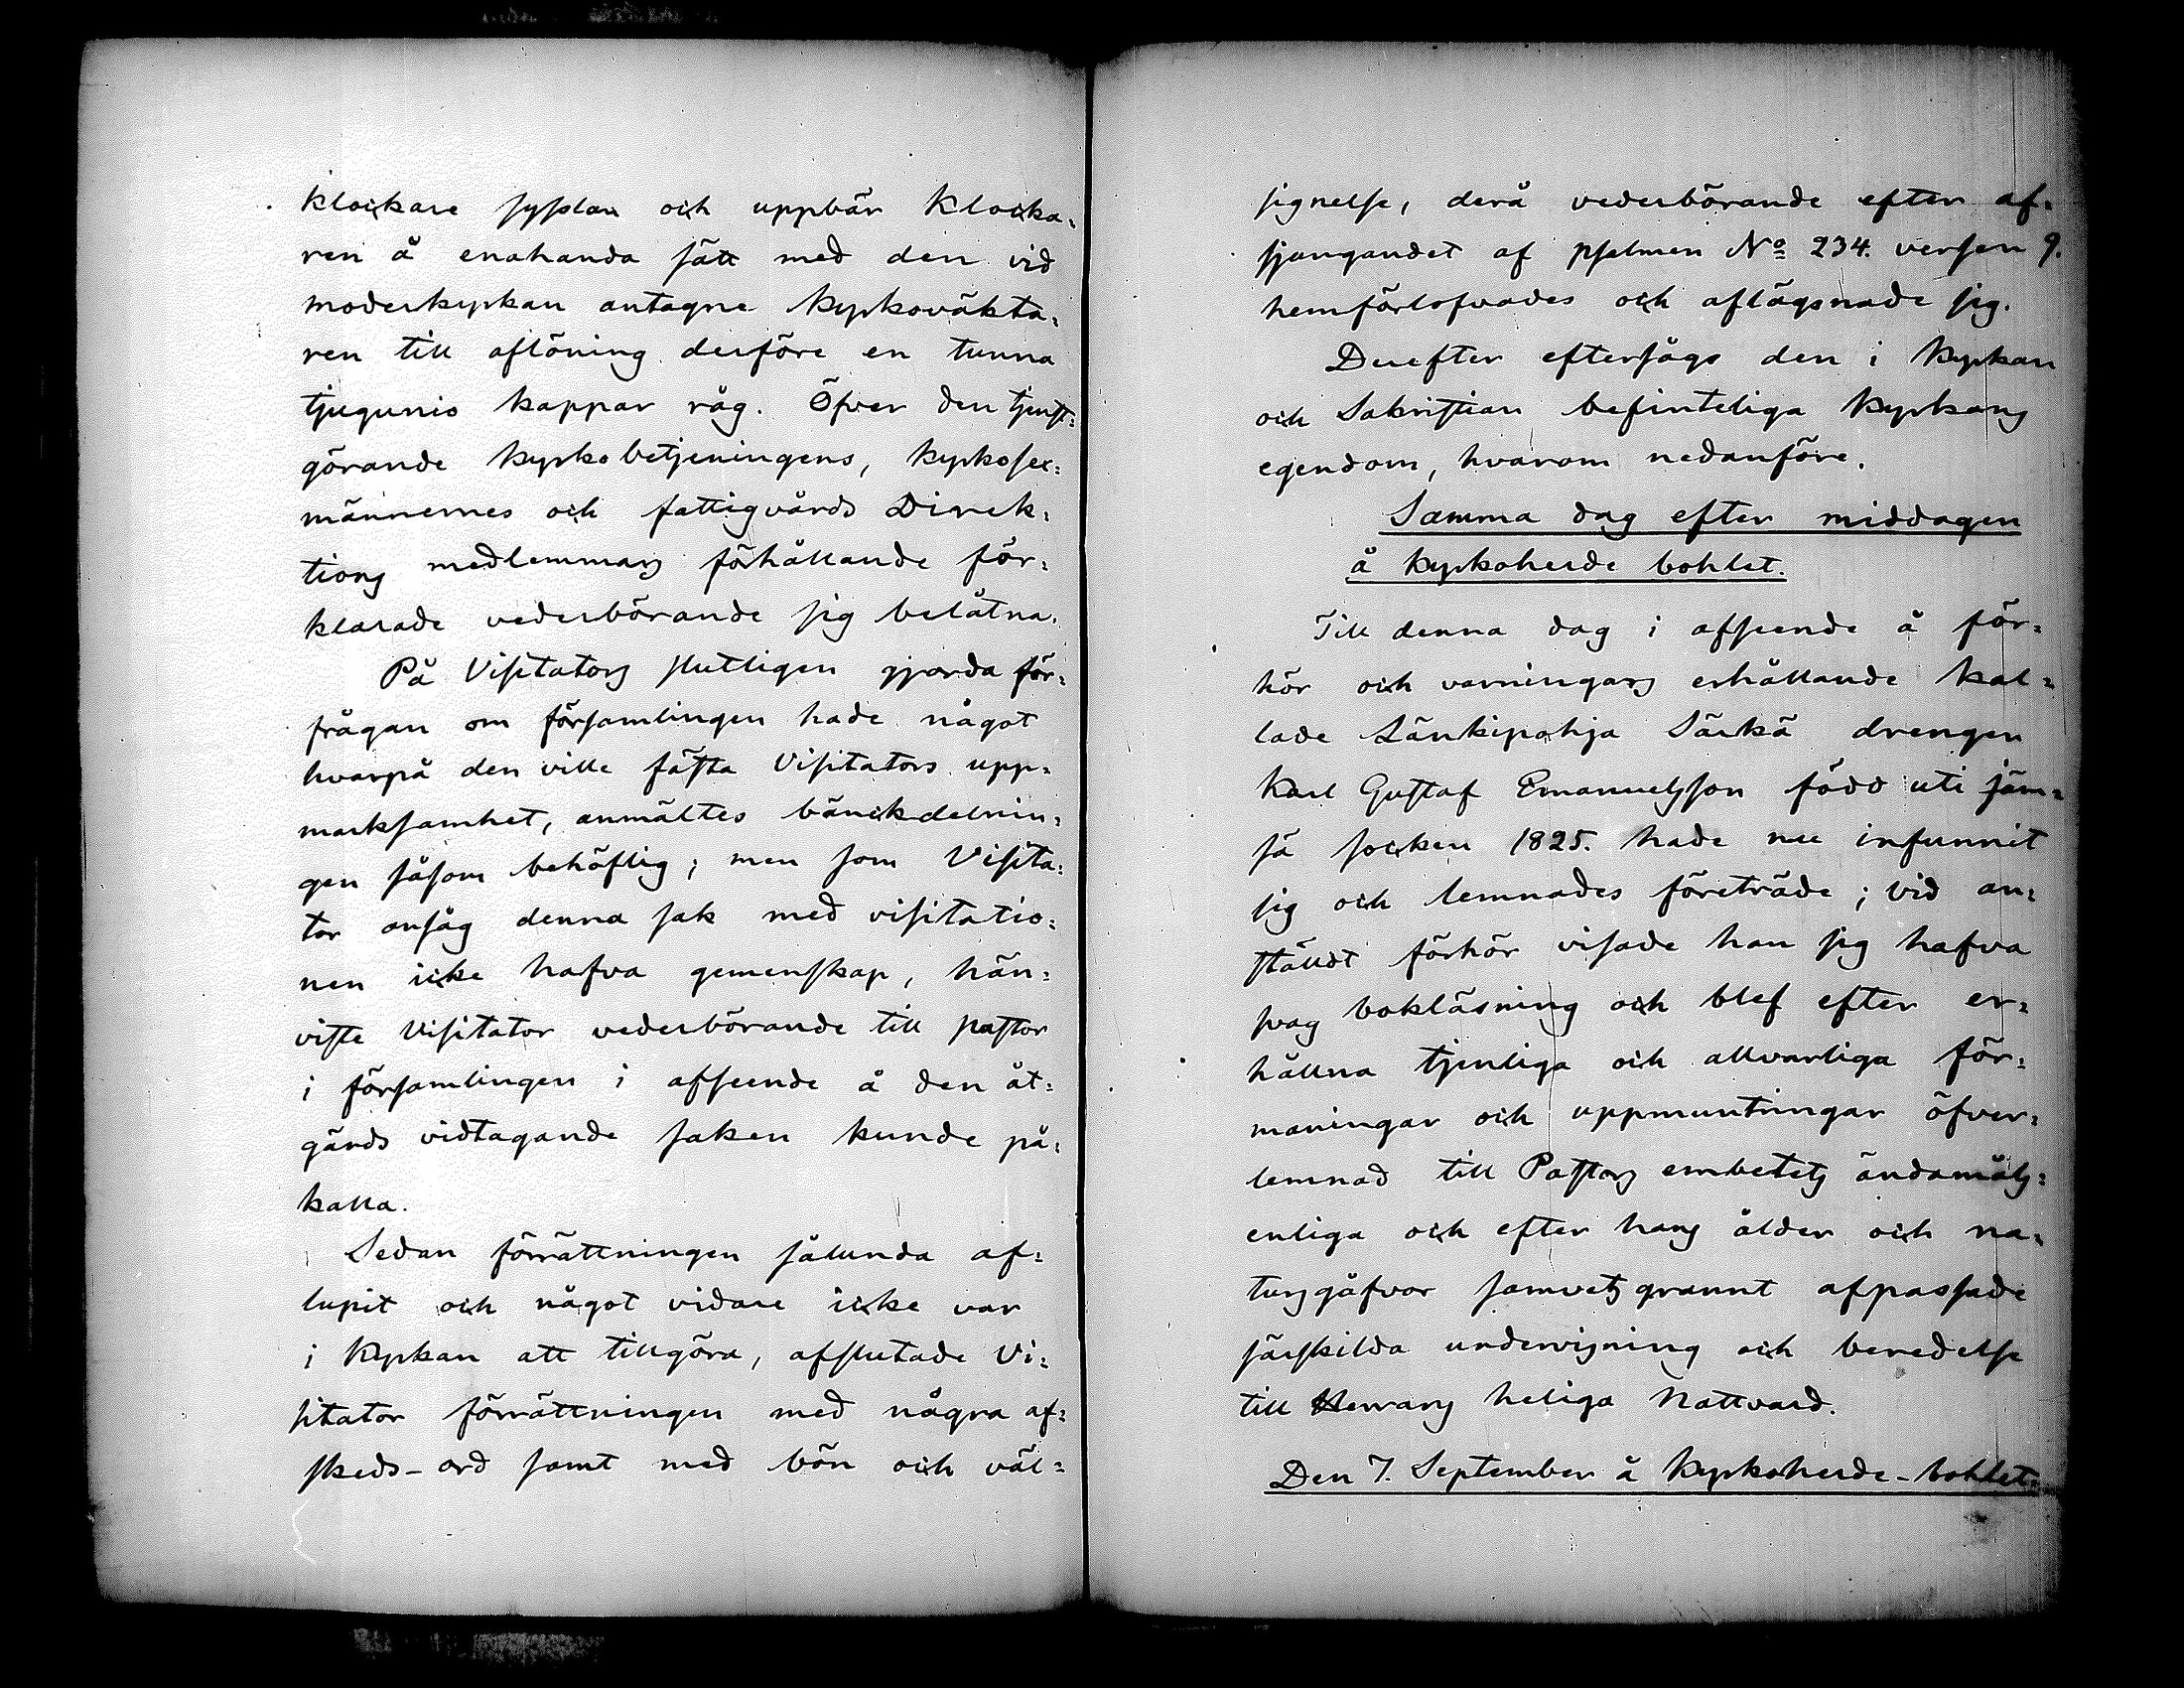 klockare sysslan och uppbär klocka=
ren å enahanda sätt med den vid
moderkyrkan antagne kyrkoväkta=
ren till aflöning derföre en tunna
tjugunio kappar råg. Öfver den tjenst=
görande kyrkobetjeningens, kyrkosex=
männernes och fattigvårds Direk=
tions medlemmars förhållande för=
klarade vederbörande sig belåtna.
På Visitators slutligen gjorda för=
frågan om församlingen hade något
hvarpå den ville fästa Visitators upp=
marksamhet, anmältes bänckdelnin=
gen såsom behöflig; men som Visita=
tor ansåg denna sak med visitatio=
nen icke hafva gemenskap, hän=
viste Visitator vederbörande till pastor
i församlingen i afseende å den åt=
gärds vidtagande saken kunde på=
kalla.
Sedan förrättningen sålunda af=
lupit och något vidare icke var
i Kyrkan att tillgöra, afslutade Vi=
sitator förrättningen med några af=
skeds-ord samt med bön och väl=
signelse, derå vederbörande efter af=
sjungandet af psalmen No 234. versen 9.
hemförlofvades och aflägsnade sig.
Derefter eftersågs den i Kyrkan
och Sakristian befinteliga Kyrkans
egendom, hvarom nedanföre.
Samma dag efter middagen
å Kyrkoherde bohlet.
Till denna dag i afseende å för=
hör och varningars erhållande kal=
lade Länkipohja Särkä drengen
Karl Gustaf Emanuelsson född uti Jäm=
sä socken 1825. hade nu infunnit
sig och lemnades företräde; vid an=
ställdt förhör visade han sig hafva
svag bokläsning och blef efter er=
hållna tjenliga och allvarliga för=
maningar och uppmuntringar öfver=
lemnad till Pastors embetets ändamåls=
enliga och efter hans ålder och na=
tursgåfvor samvetsgrannt afpassade
särskilda undervisning och beredelse
till Herrans heliga Nattvard.
Den 7. September å Kyrkoherde-bohlet.